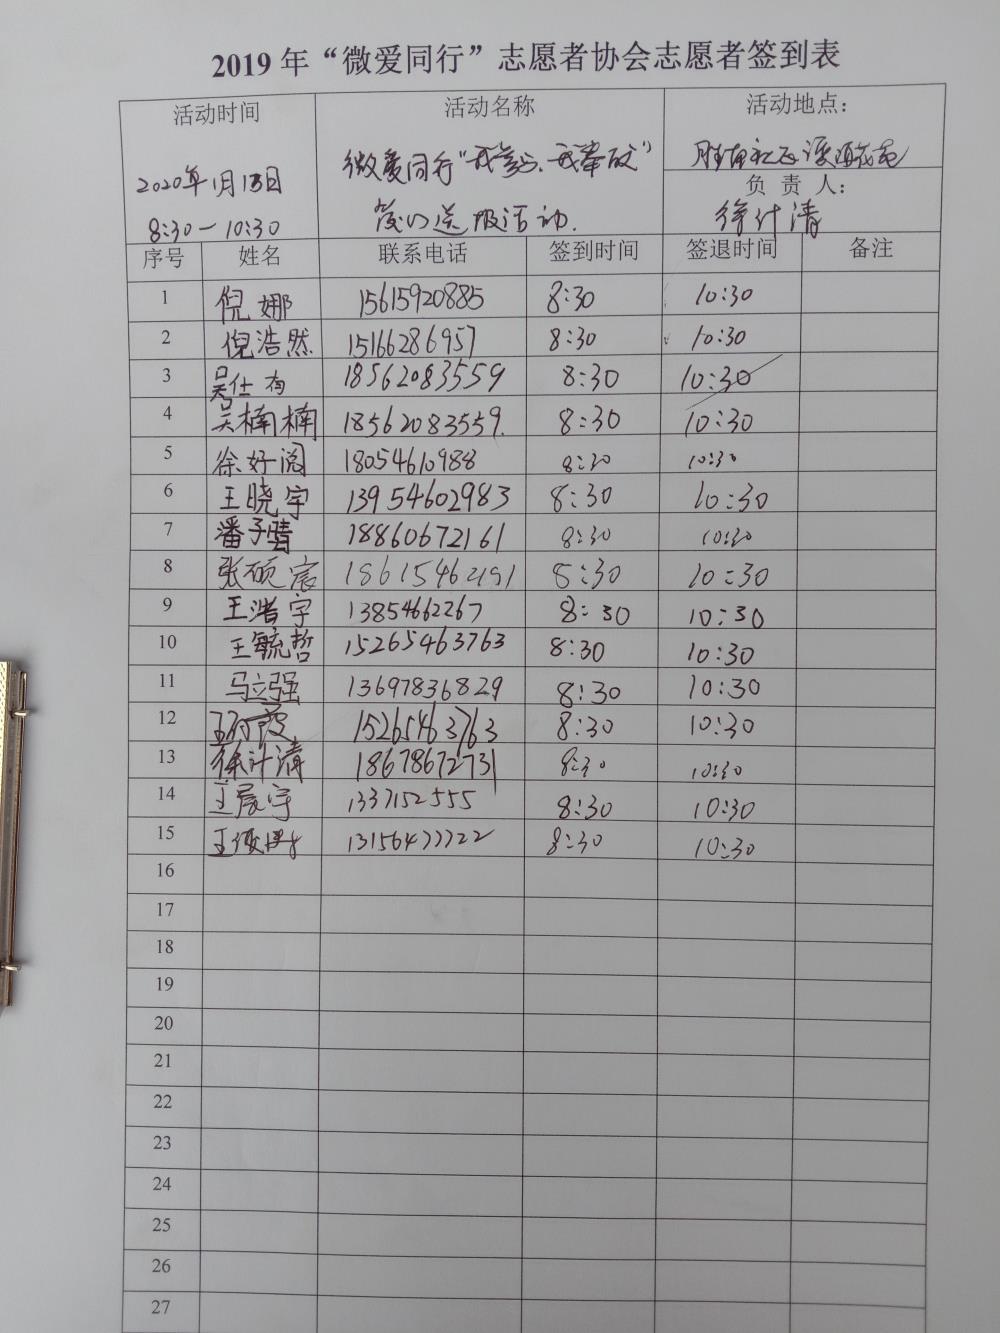 2019 年“微爱同行”志愿者协会志愿者签到表
活动时间 活动名称 活动地点：
2020年1月13日 微爱同行“我参与、我奉献” 胜南社区
8:30—10:30 送服活动. 负 责 人： 徐计清
序号 姓名 联系电话 签到时间 签退时间 备注
1 倪娜 15615920885 8:30 10:30
2 倪浩然 15166286957 8:30 10:30
3 吴仕 18562083559 8:30 10:30
4 吴楠楠 18562083559. 8:30 10:30
5 徐好阅 18054610988 8:30 10:30
6 王晓宇 13954602983 8:30 10:30
7 潘子晴 18860672161 8:30 10:30
8 张硕宸 18615462191 8:30 10:30
9 王浩宇 13854662267 8:30 10:30
10 王毓哲 15265463763 8:30 10:30
11 马立强 13697836829 8:30 10:30
12 15265463763 8:30 10:30
13 徐计清 18678672731 8:30 10:30
14 王晨宇 1337152555 8:30 10:30
15 王 13156477722 8:30 10:30
16
17
18
19
20
21
22
23
24
25
26
27